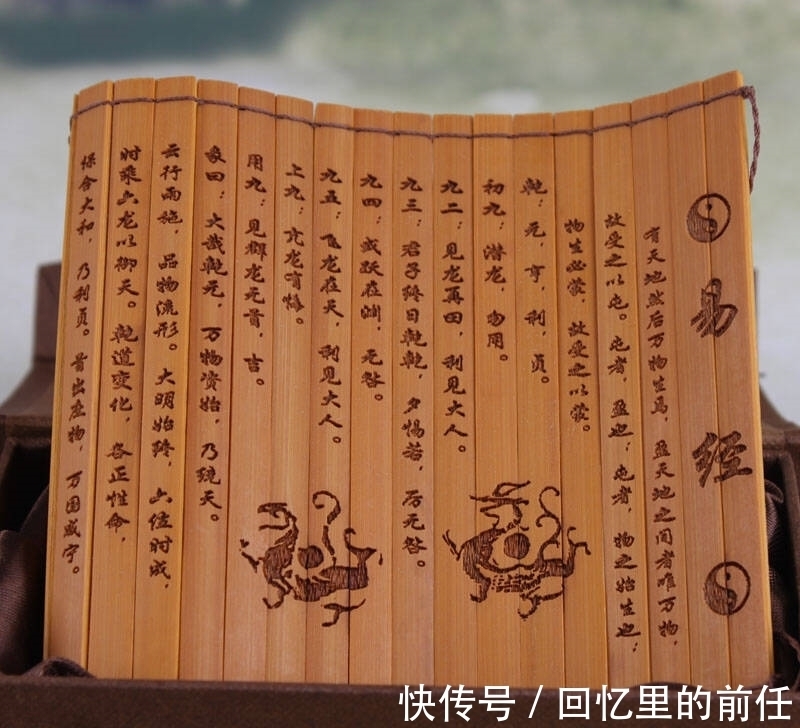 易经
有天地然后万物生焉，盈天地之间者唯万物，
故受之以屯。屯者，盈也；屯者，物之始生也；
物生必蒙，故受之以蒙。
乾：元，亨，利，贞。
初九：潜龙，勿用。
九二：见龙再田，利见大人。
九三：君子终日乾乾，夕惕若，厉无咎。
九四：或跃在渊，无咎。
九五：飞龙在天，利见大人。
上九：亢龙有悔。
用九：见群龙无首，吉。
彖曰：大哉乾元，万物资始，乃统天。
云行雨施，品物流形。大明始终，六位时成，
时乘六龙以御天。乾道变化，各正性命，
保合大和，乃利贞。首出庶物，万国咸宁。
快传号 / 回忆里的前任